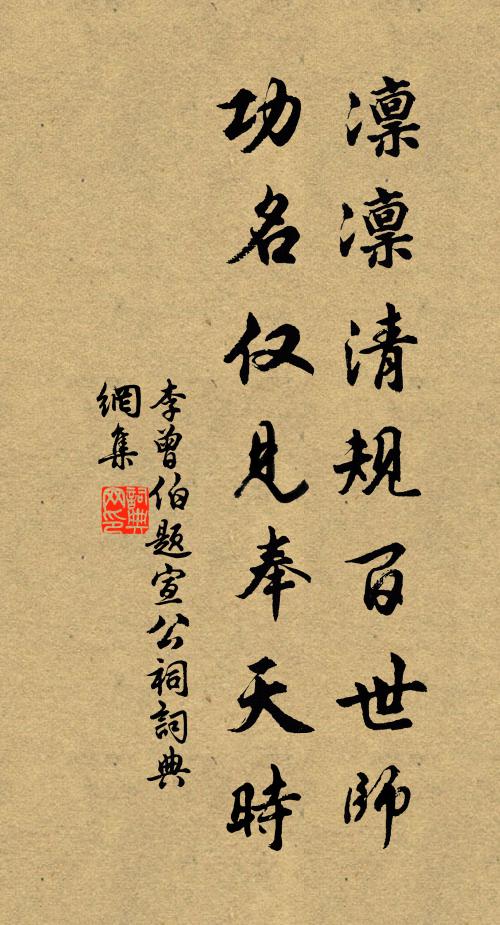 凛凛清規百世師
功名仅見奉天時
李曾伯題宣公祠詞典
網集
詞典网印